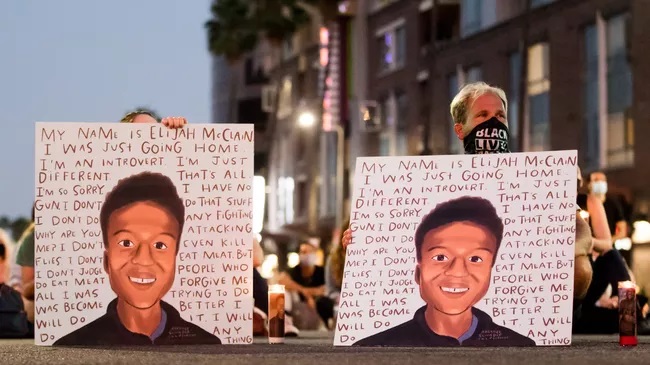 MY NAME IS ELIJAH McCLAIN
I WAS JUST GOING HOME.
I'M AN INTROVERT. I'M JUST
DIFFERENT. THAT'S ALL
I'M SO SORRY I HAVE NO
GUN I DON'T DO THAT STUFF
I DON'T DO ANY FIGHTING
WHY ARE YOU ATTACKING
ME? I DON'T EVEN KILL
FLIES I DON'T EAT MEAT. BUT
I DON'T JUDGE PEOPLE WHO
DO EAT MEAT FORGIVE ME
ALL I WAS TRYING TO DO
WAS BECOME BETTER
I WILL DO IT. I WILL
ANY
THING
BLACK
LIVES
MY NAME IS ELIJAH McCLAIN
I WAS JUST GOING HOME.
I'M AN INTROVERT. I'M JUST
DIFFERENT. THAT'S ALL
I'M SO SORRY I HAVE NO
GUN I DON'T DO THAT STUFF
I DON'T DO ANY FIGHTING
WHY ARE YOU ATTACKING
ME? I DON'T EVEN KILL
FLIES I DON'T EAT MEAT. BUT
I DON'T JUDGE PEOPLE WHO
DO EAT MEAT FORGIVE ME
ALL I WAS TRYING TO DO
WAS BECOME BETTER
I WILL DO IT. I WILL
ANY
THING